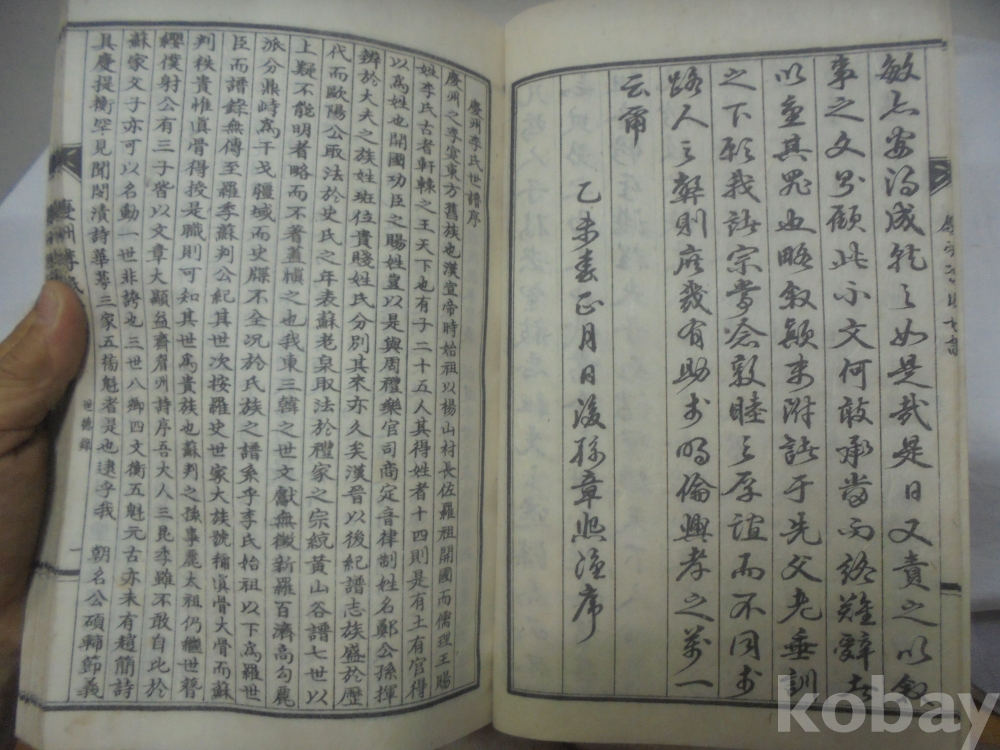 敏亦安得成就之如是哉是日又責之以敘
事之文余顧此小文何敢承當而終難辭
以重其罪也略敘顛末附話于先父老垂訓
之下願我諸宗常念敦睦之厚誼而不同於
路人之翳則庶幾有助於明倫興孝之萬一
云爾
乙未春正月日後孫章熙謹序
慶州李氏世譜序
慶州之李寔東方舊族也漢宣帝時始祖以楊山村長佐羅祖開國而儒理王賜
姓李氏古者軒轅之王天下也有子二十五人其得姓者十四則是有土有官得
以為姓也開國功臣之賜姓豈以是與周禮樂官司商定音律制姓名鄭公孫揮
辨於大夫之族姓班位貴賤姓氏分別其來亦久矣漢晉以後紀譜志族盛於歷
代而歐陽公取法於史氏之年表蘇老泉取法於禮家之宗統黃山谷譜七世以
上疑不能明者略而不著蓋愼之也我東三韓之世文獻無徵新羅百濟高句麗
派分鼎峙為干戈疆域而史牒不全況於氏族之譜系乎李氏始祖以下為羅世
臣而譜錄無傳至羅季蘇判公紀其世次按羅史世家大族號稱眞骨大骨而蘇
判秩貴惟眞骨得授是職則可知其世為貴族也蘇判之孫事麗太祖仍繼世簪
纓僕射公有三子皆以文章大顯益齋眉洲詩序吾大人三昆季雖不敢自比於
蘇家文子亦可以名動一世非誇也三世八卿四文衡五魁元古亦未有趙簡詩
具慶提衡罕見聞閔漬詩華萼三家五榜魁者是也逮乎我 朝名公碩輔節義
慶州李氏
世德錄
一
kobay